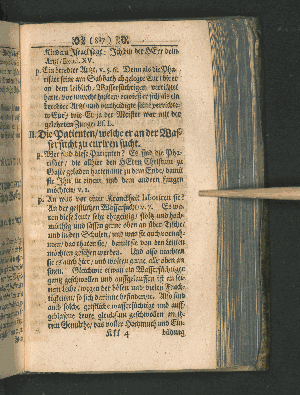 (887)
Kindern Israel sagt: Ich bin der HErr dein
Artzt, Exod. XV.
2. Ein beredter Artzt, v. 5. 6. Denn als die Pha-
riseer seine am Sabbath
an dem leiblich Wassersüchtigen
der Meister mit der
gelehrten Zungen Es. L.
II. Die Patienten, welche er an der Was-
sersucht zu curiren sucht.
Wer sind diese Patienten? Es sind die Pha-
riseer, die allhier den HErrn Christum zu
Gaste geladen hatten nur zu dem Ende, damit
sie Ihn in einem und dem andern fangen
möchten, v. 1.
An was vor einer Kranckheit laboriren sie?
An der geistlichen Wassersucht, v. 7. Es wa-
ren diese Leute sehr ehrgeitzig, stoltz und hoch-
müthig und sassen gerne oben an über Tische,
und in den Schulen, und was sie auch vornah-
men, das thaten sie, damit sie von den Leuten
möchten gesehen werden. Und also machten
sie es auch hier, und wolten gerne alle oben an
sitzen. Gleichwie etwan ein Wassersüchtiger
gantz geschwollen und aufgelauffen ist an sei-
nem Leibe, wegen der bösen und vielen Feuch-
tigkeiten, so sich darinne befinden: Also sind
auch solche geistliche wassersüchtige und auff-
geblasene Leute gleichsam geschwollen an ih-
rem Gemüthe, das voller Hochmuth und Ein-
Kkk 4 bildung